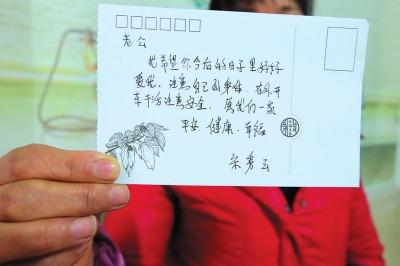 老公
我希望你今后的日子里好好
爱我，注意自己的身体，在外开
车干活注意安全，愿我们一家
平安 健康 幸福
宋秀云